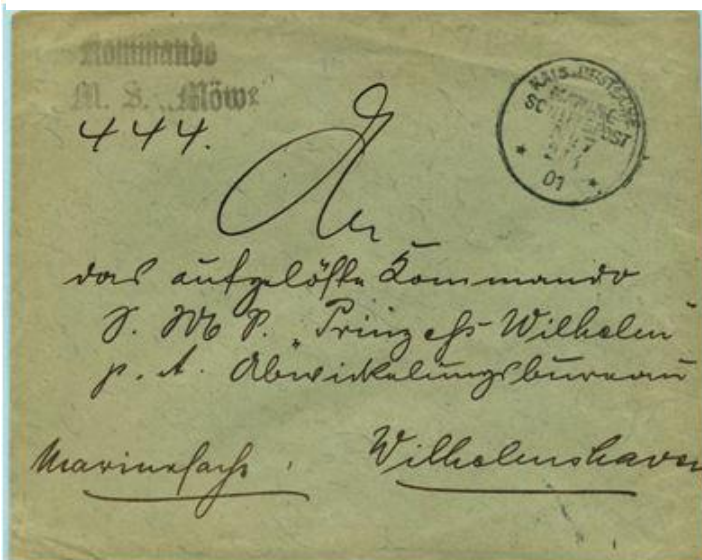 Kommando
M. S. „Möwe
KAIS. DEUTSCHE
MARINE-
SCHIFFSPOST
No 7
01
444.
An
das aufgelöste Kommando
S. M. S. „Prinzess Wilhelm"
p. A. Abwickelungsbureau
Marinesache.
Wilhelmshaven